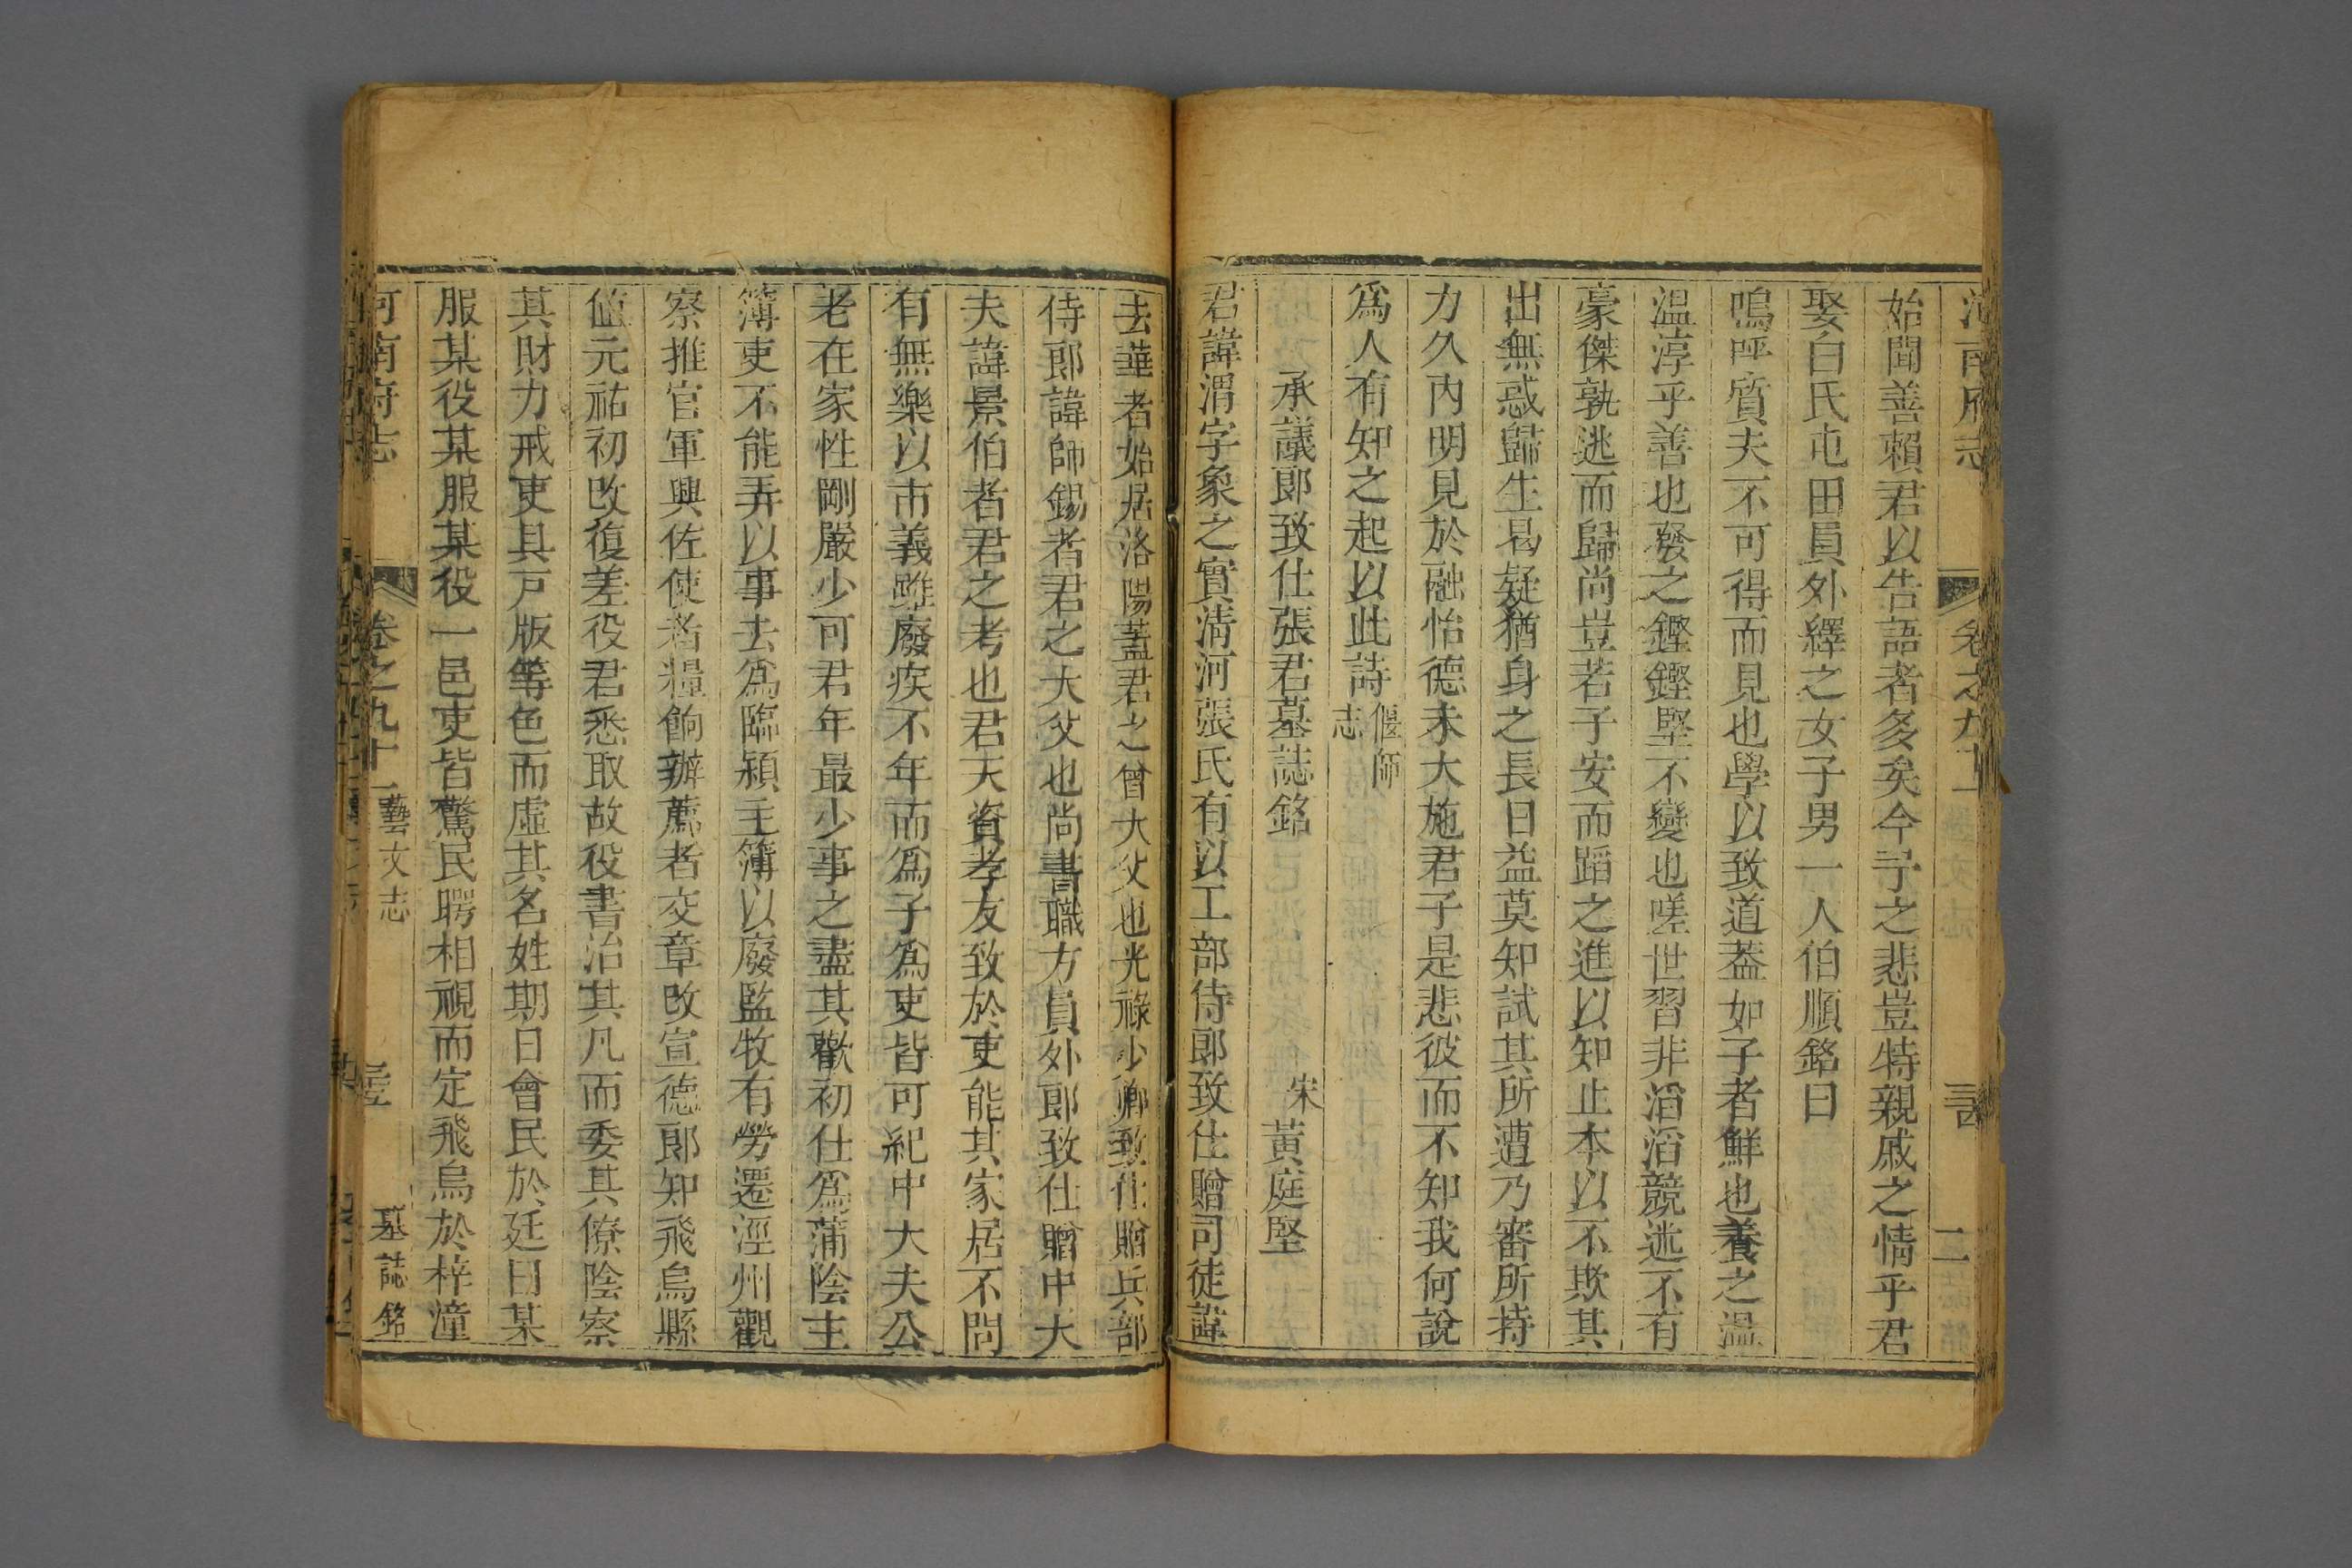 河南府志 卷之九十一 二
始聞善賴君以告語者多矣今予之悲豈特親戚之情乎君
娶白氏屯田員外繹之女子男一人伯順銘曰
嗚呼質夫不可得而見也學以致道葢如子者鮮也養之溫
溫淳乎善也發之鏗鏗堅不變也嗟世習非滔滔競逃不有
豪傑孰逃而歸尚豈若子安而蹈之進以知止本以不欺其
出無惑歸生曷疑猶身之長日益莫知試其所遭乃審所持
力久內明見於融怡德未大施君子是悲彼而不知我何說
爲人有知之起以此詩 偃師
志
承議郎致仕張君墓誌銘 宋 黃庭堅
君諱渭字象之實淸河張氏有以工部侍郎致仕贈司徒諱
去華者始居洛陽葢君之曾大父也光祿少卿致仕贈兵部
侍郎諱師錫者君之大父也尚書職方員外郎致仕贈中大
夫諱景伯者君之考也君天資孝友致於吏能其家居不問
有無樂以市義雖廢疾不年而爲子爲吏皆可紀中大夫公
老在家性剛嚴少可君年最少事之盡其歡初仕爲蒲陰主
簿吏不能弄以事去爲臨潁主簿以廢監牧有勞遷涇州觀
察推官軍興佐使者糧餉辦薦者交章改宣德郎知飛烏縣
值元祐初改復差役君悉取故役書治其凡而委其僚陰察
其財力戒吏具戸版等色而虛其名姓期日會民於廷曰某
服某役某服某役一邑吏皆驚民聘相視而定飛烏於梓潼
河南府志 卷之九十一 藝文志 墓誌銘